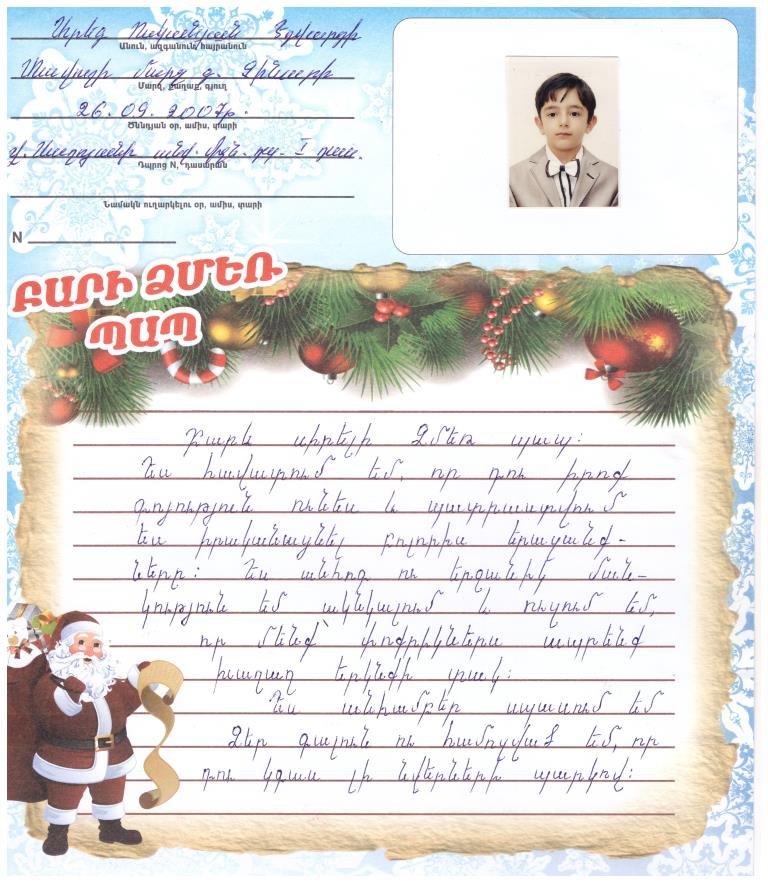 Արեգ Ոսկանյան Էդվարդի
Անուն, ազգանուն/հայրանուն
Տավուշի մարզ գ. Չինարի
Մարզ, քաղաք, գյուղ
26.09.2007թ.
Ծննդյան օր, ամիս, տարի
անվ. միջն. դպ. I դաս.
Դպրոց N, դասարան
Նամակն ուղարկելու օր, ամիս, տարի
N
ԲԱՐԻ ՁՄԵՌ
ՊԱՊ
Բարև սիրելի Ձմեռ պապ:
Ես հավատում եմ, որ դու իրոք
գոյություն ունես և պատրաստվում
ես իրականացնել բոլորիս երազանք-
ները: Ես անհոգ ու երջանիկ ման-
կություն եմ ակնկալում և ուզում եմ,
որ մենք՝ փոքրիկներս ապրենք
խաղաղ երկնքի տակ:
Ես անհամբեր սպասում եմ
Ձեր գալուն ու համոզված եմ, որ
դու կգաս լի նվերների պարկով: